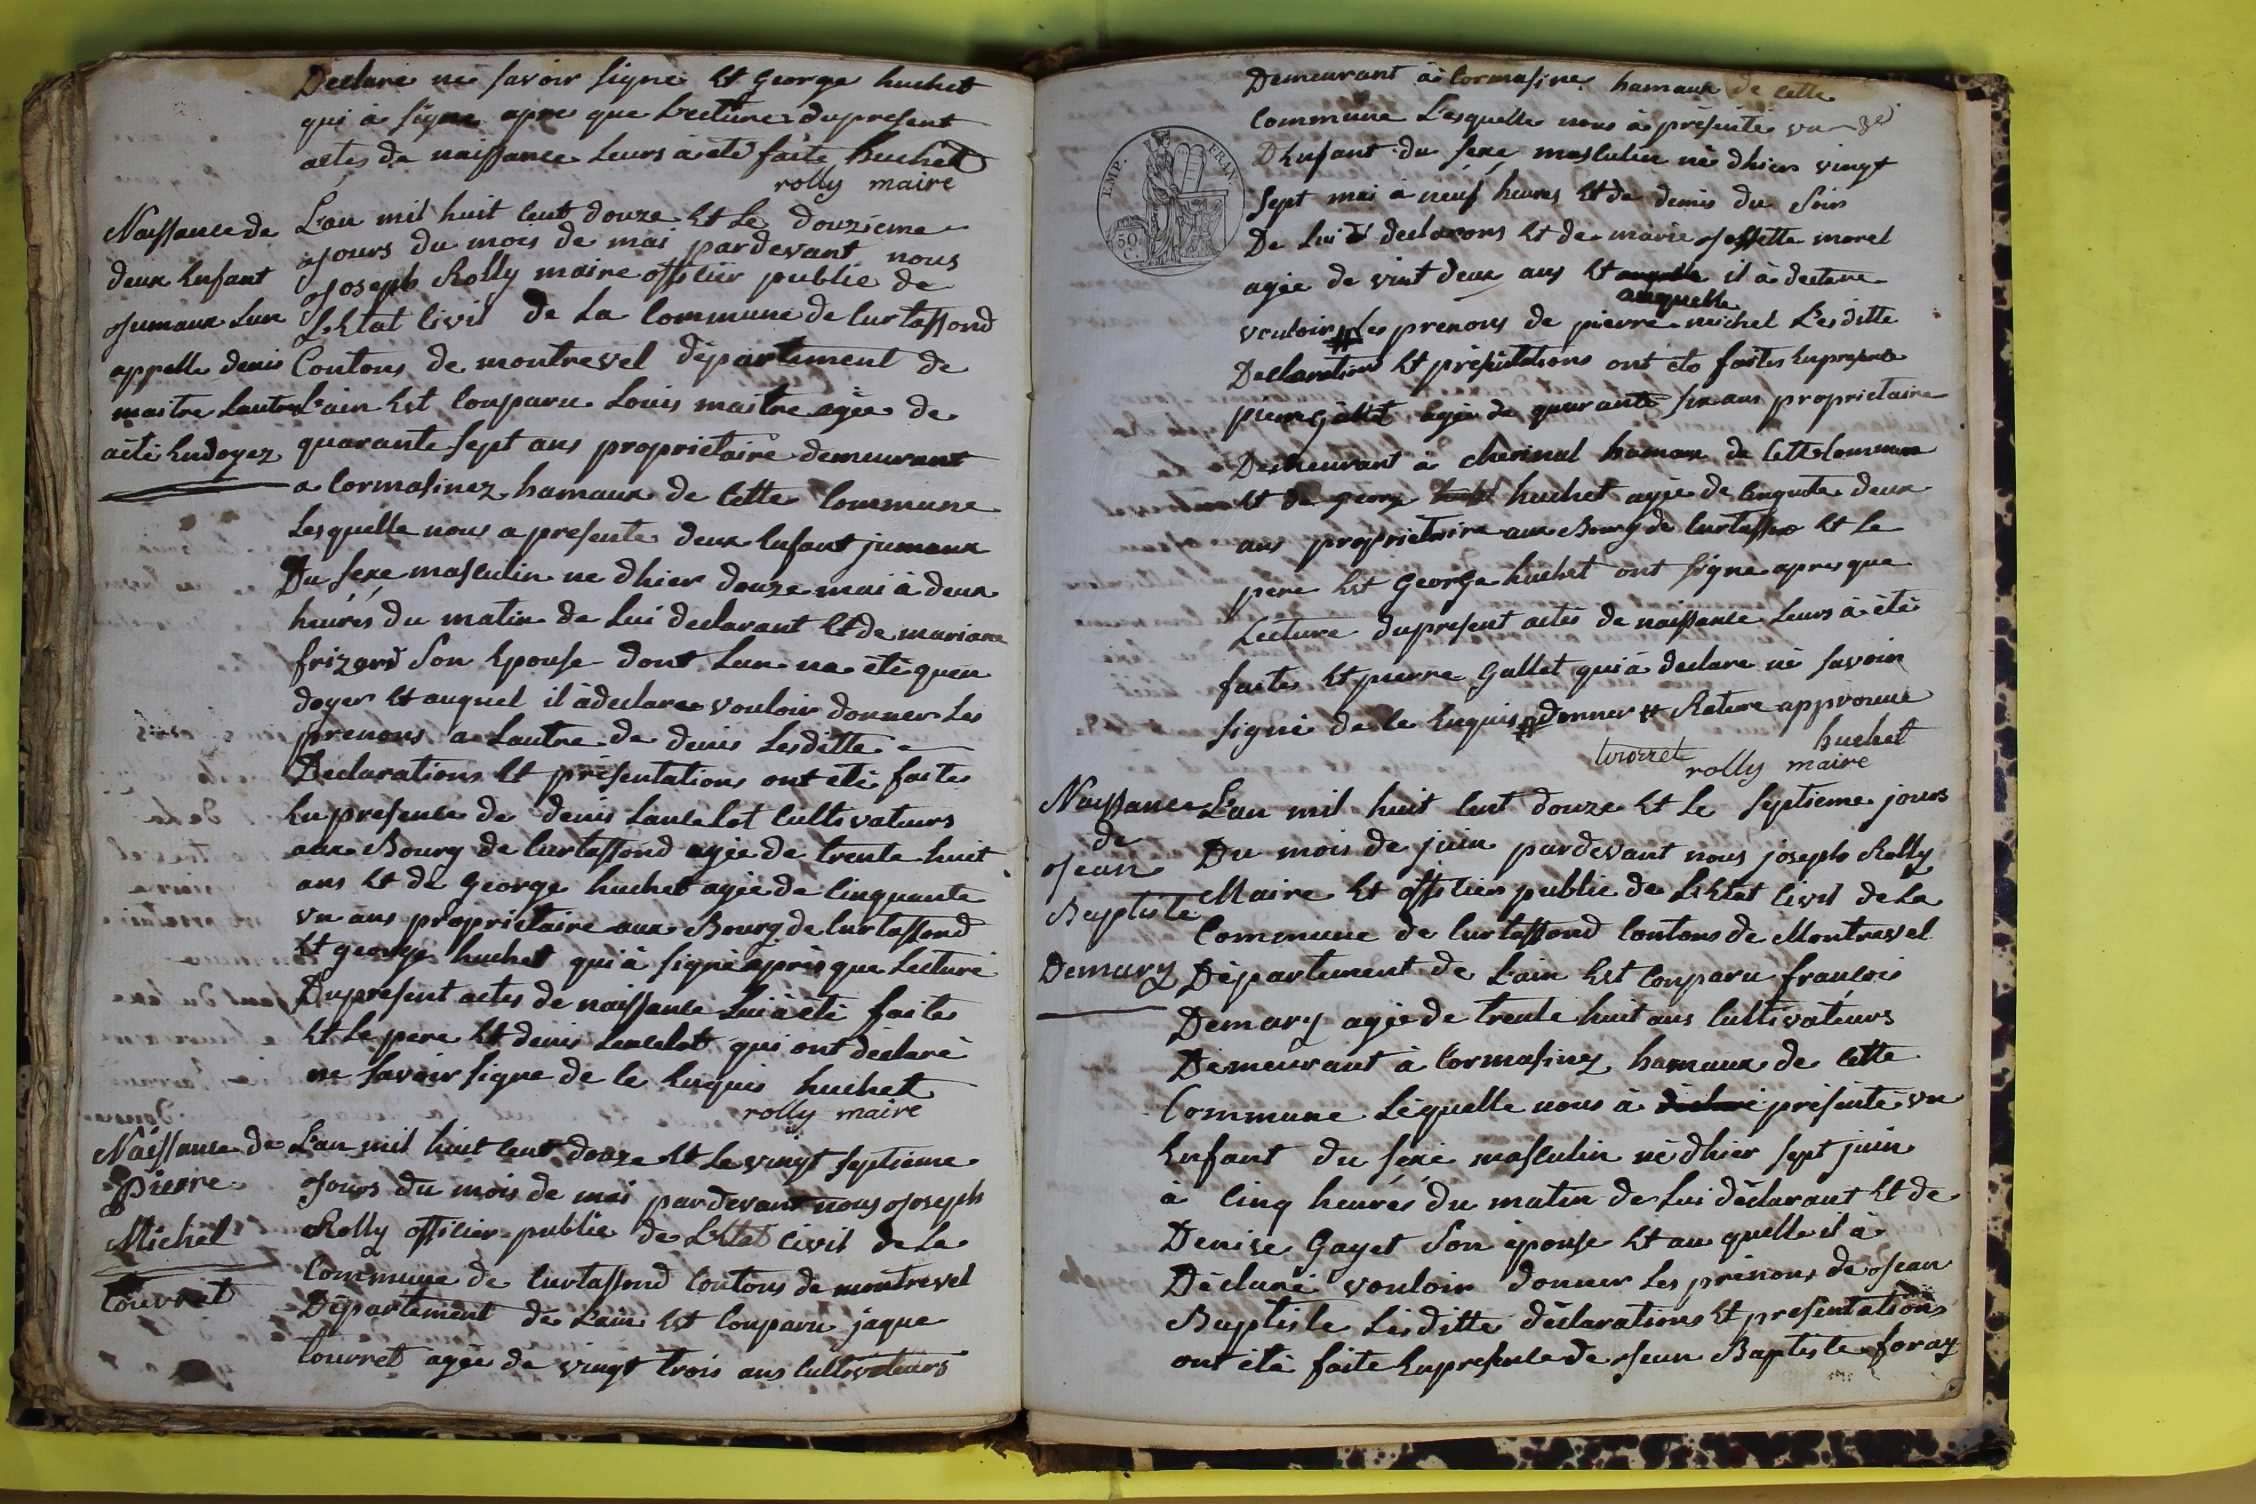 Declare ne savoir signe Et George huchet
qui à signe apre que Lecture dupresent
actes de naissance Leurs à été faite huchet
rolly maire
Naissance de
deux Enfant
Jumaux Lun
appelle denis
maitre Lautre
a été Endoyez
L'an mil huit Cent douze Et Le douzieme
Jours du mois de mai pardevant nous
Joseph Rolly maire officier public de
L'Etat Civil de La Commune de Curtassond
Contons de montrevel département de
L'ain Est Conparu Louis maitre agée de
quarante sept ans proprietaire demeurant
a Cormasinez hamaux de Cette Commune
Lesquelle nous a presente deux Enfant jumaux
Du sexe masculin ne dhier douze mai à deux
heurés du matin de Lui declarant Et de mariane
frizard Son Epouse dont Lun na été quen
doyer Et auquel il à declare vouloir donner Les
prenons a Lautre de denis Lesditte
Declarations Et présentations ont été faites
En presence de denis Lancelot Cultivateurs
aux Bourg de Curtassond agée de trente huit
ans Et de George huchet agée de Cinquante
vn ans proprietaire aux Bourg de Curtassond
Et george huchet qui à signé après que Lecture
Dupresent actes de naissance Lui à été faites
Et Le pere Et denis Lancelot qui ont déclaré
ne savoir signe de le Enquis huchet
rolly maire
Naissance de
Pierre
Michel
Couvret
L'an mil huit Cent douze Et Le vingt septieme
Jours du mois de mai pardevant nous Joseph
Rolly officier public de L'Etat Civil de La
Commune de Curtassond Contons de montrevel
Département de L'ain Est Conparu jaque
Couvret agée de vingt trois ans Cultivateurs
Demeurant à Cormasine hamaux de Cette
Commune Lesquelle nous à présenté vn
DEnfant du sexe masculin né dhier vingt
Sept mai à neuf heures Et de demis du Soir
De Lui declarons Et de marie Josette morel
EMP. FRAN.
50 C.
agée de vint deux ans Et auquelle il à declare
auquelle
vouloir # Les prenons de pierre michel Lesditte
Declaration Et présentations ont été faites En presence
pierre Gallet agée de quarante six ans proprietaire
Demeurant à Cherinal hamaux de Cette Commune
Et de Georg huchet agée de Cinqute deux
ans proprietaire aux Bourg de Curtassond Et Le
pere Est George huchet ont signe apres que
Lécture dupresent actes de naissance Leurs à été
faites Et pierre Gallet qui à declare né savoir
signé de le Enquis # donner # Rature approuvé
huchet
Couvret
rolly maire
Naissance
de
Jean
Baptiste
Demary
L'an mil huit Cent douze Et Le septieme jours
Du mois de juin pardevant nous joseph Rolly
Maire Et officier public de L'Etat Civil de La
Commune de Curtassond Contons de Montrevel
Département de L'ain Est Conparu francois
Demary agée de trente huit ans Cultivateurs
Demeurant à Cormasinez hamaux de Cette
Commune Léquelle nous à déclaré présenté vn
Enfant du séxe masculin né dhier sept juin
à Cinq heurés du matin de Lui déclarant Et de
Denise Gayet Son épouse Et au quelle il à
Déclaré vouloir donner Les prénons de Jean
Baptiste Lesditte déclarations Et présentations
ont été faite En presence de Jean Baptiste foray